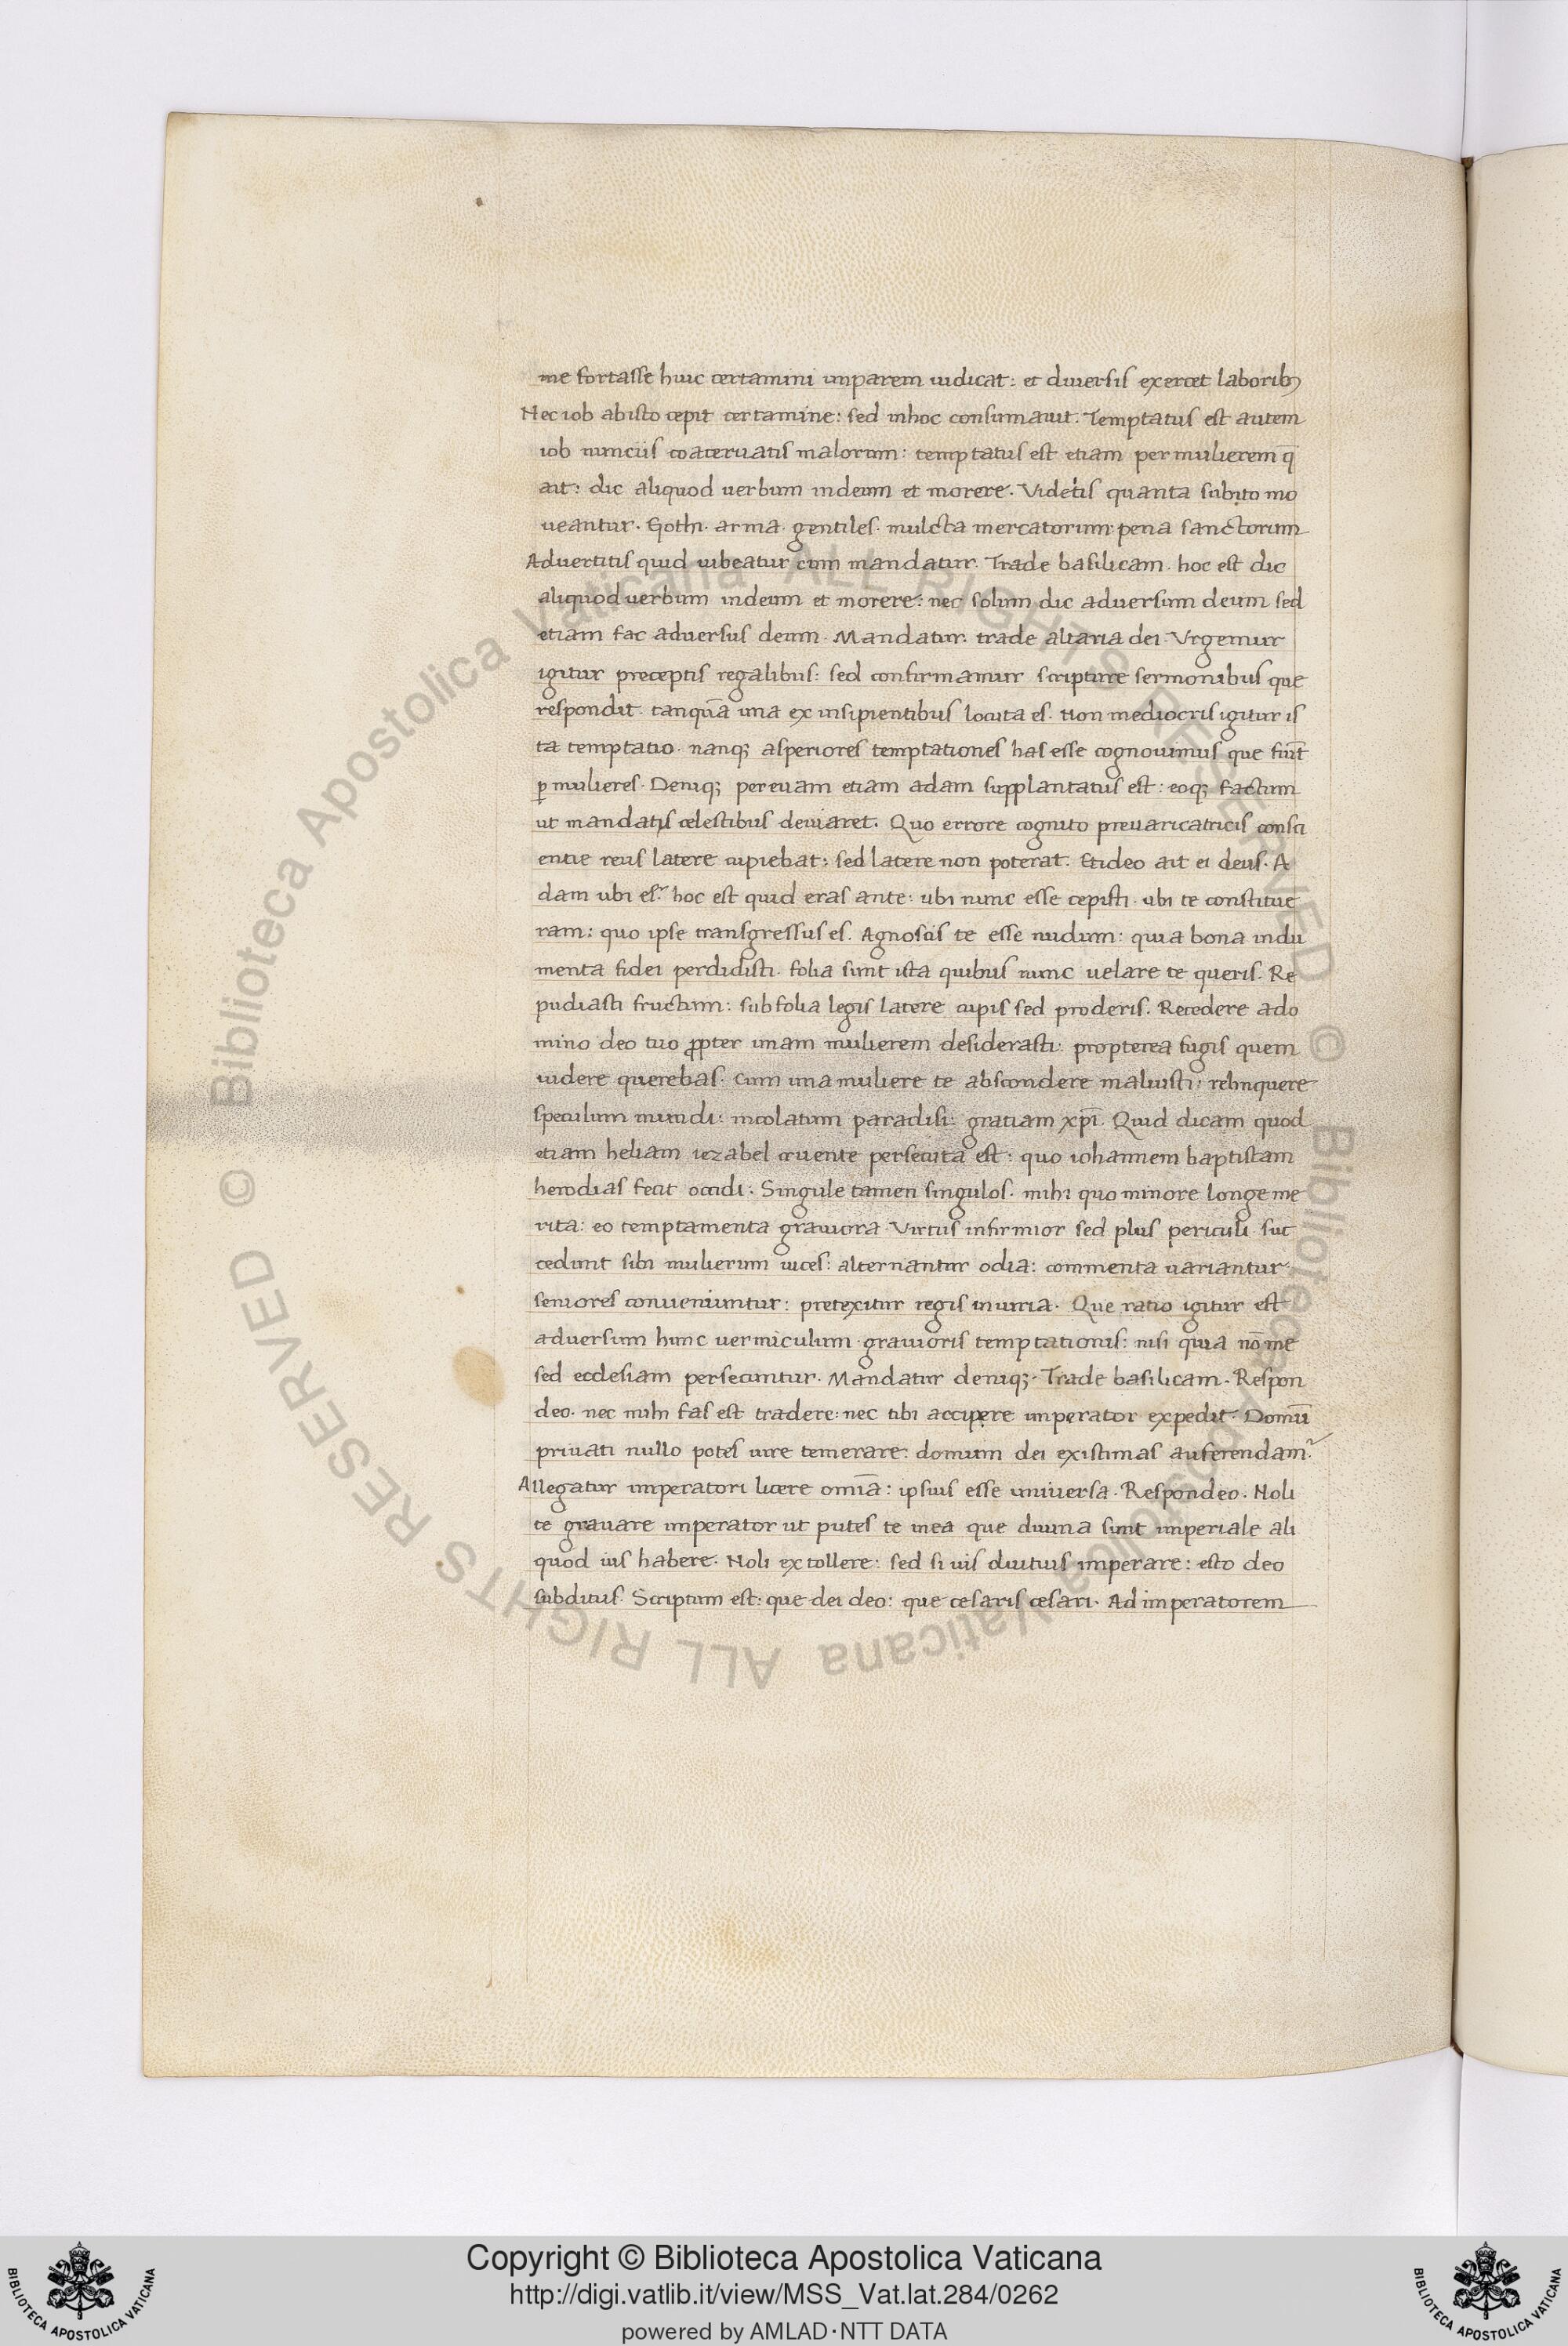 me fortasse huic certamini imparem iudicat: et diuersis exercet laborib;
Nec iob abisto cepit certamine: sed inhoc consumauit. Temptatus est autem
iob nunciis coaceruatis malorum: temptatus est etiam per mulierem q̄
ait: dic aliquod uerbum indeum et morere. Videtis quanta subito mo
ueantur. Goth. arma. gentiles. mulcta mercatorum. pena sanctorum
Aduertitis quid iubeatur cum mandatur. Trade basilicam. hoc est dic
aliquod uerbum indeum et morere: nec solum dic aduersum deum sed
etiam fac aduersus deum. Mandatur. trade altaria dei. Vrgemur
igitur preceptis regalibus: sed confirmamur scripture sermonibus que
respondit. tanquā una ex insipientibus locuta es. Non mediocris igitur is
ta temptatio. nanq; asperiores temptationes has esse cognouimus que fiūt
ꝑ mulieres. Deniq; pereuam etiam adam supplantatus est: eoq; factum
ut mandatis celestibus deuiaret. Quo errore cognito preuaricatricis consci
entie reus latere cupiebat: sed latere non poterat. Etideo ait ei deus. A
dam ubi es? hoc est quid eras ante: ubi nunc esse cepisti. ubi te constitue
ram: quo ipse transgressus es. Agnoscis te esse nudum: quia bona indu
menta fidei perdidisti. folia sunt ista quibus nunc uelare te queris. Re
pudiasti fructum: subfolia legis latere cupis sed proderis. Recedere ado
mino deo tuo ꝓpter unam mulierem desiderasti: propterea fugis quem
uidere querebas. Cum una muliere te abscondere maluisti: relinquere
speculum mundi: incolatum paradisi: gratiam xp̄i. Quid dicam quod
etiam heliam iezabel cruente persecuta est: quo iohannem baptistam
herodias fecit occidi. Singule tamen singulos. mihi quo minore longe me
rita: eo temptamenta grauiora. Virtus infirmior sed plus periculi. suc
cedunt sibi mulierum uices: alternantur odia: commenta uariantur
seniores conueniuntur: pretexitur regis iniuria. Que ratio igitur est
aduersum hunc uermiculum grauioris temptationis: nisi quia nō me
sed ecclesiam persecuntur. Mandatur deniq;. Trade basilicam. Respon
deo. nec mihi fas est tradere: nec tibi accipere imperator expedit. Domū
priuati nullo potes iure temerare: domum dei existimas auferendam?
Allegatur imperatori licere omīa: ipsius esse uniuersa. Respondeo. Noli
te grauare imperator ut putes te inea que diuina sunt imperiale ali
quod ius habere. Noli extollere: sed si uis diutius imperare: esto deo
subditus. Scriptum est: que dei deo: que cesaris cesari. Ad imperatorem
Copyright © Biblioteca Apostolica Vaticana
http://digi.vatlib.it/view/MSS_Vat.lat.284/0262
powered by AMLAD·NTT DATA
BIBLIOTECA APOSTOLICA VATICANA
BIBLIOTECA APOSTOLICA VATICANA
© Biblioteca Apostolica Vaticana ALL RIGHTS RESERVED
© Biblioteca Apostolica Vaticana ALL RIGHTS RESERVED